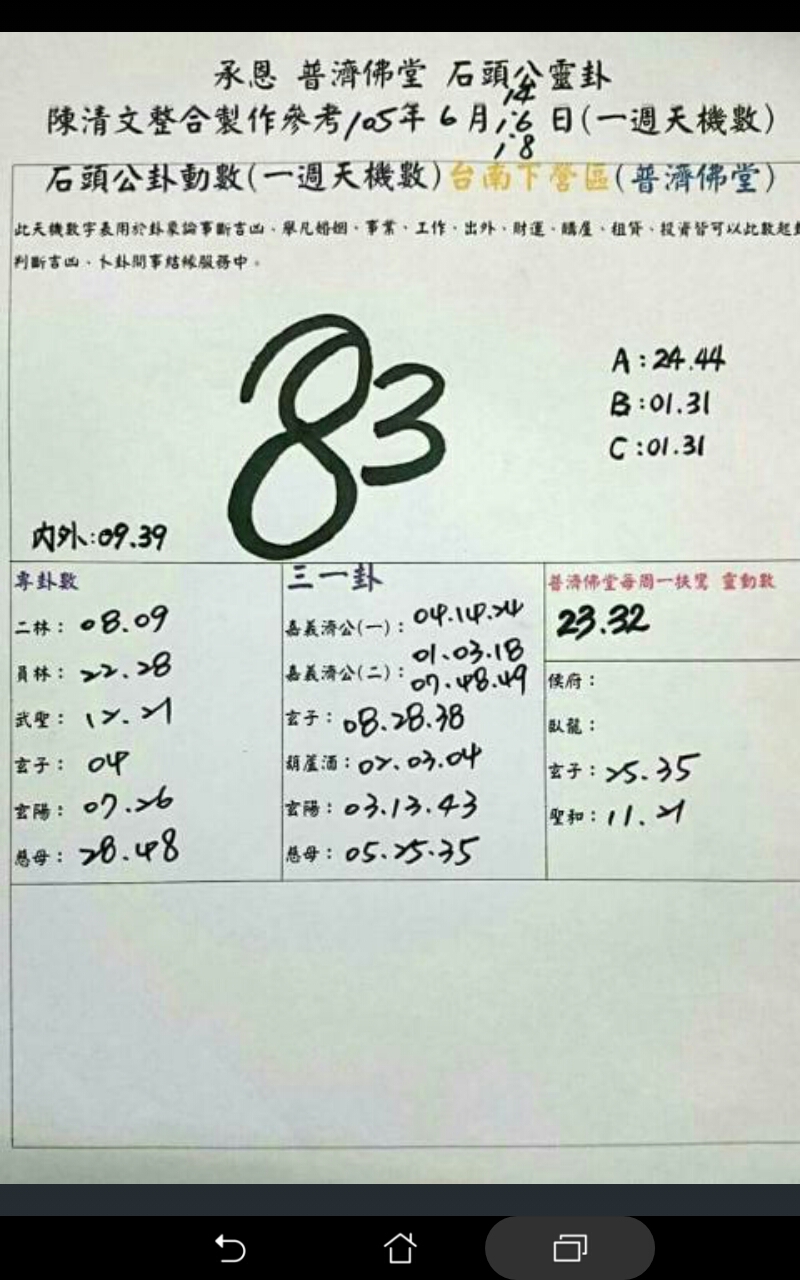 承恩 普濟佛堂 石頭公靈卦
陳清文整合製作參考105年6月14.16.18日(一週天機數)
石頭公卦動數(一週天機數)台南下營區(普濟佛堂)
此天機數字表用於卦象論事斷吉凶、舉凡婚姻、事業、工作、出外、財運、購屋、租賃、投資皆可以此數起卦
判斷吉凶、卜卦問事結緣服務中。
83
A:24.44
B:01.31
C:01.31
內外:09.39
專卦數
二林:08.09
員林:22.28
武聖:12.21
玄子:04
玄陽:07.26
慈母:28.48
三一卦
嘉義濟公(一):04.14.24
嘉義濟公(二):01.03.18
07.48.49
玄子:08.28.38
葫蘆酒:02.03.04
玄陽:03.13.43
慈母:05.25.35
普濟佛堂每周一扶鸞 靈動數
23.32
侯府:
臥龍:
玄子:25.35
聖和:11.21